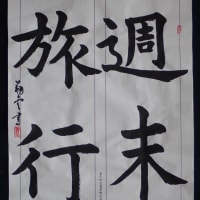 週末
旅行